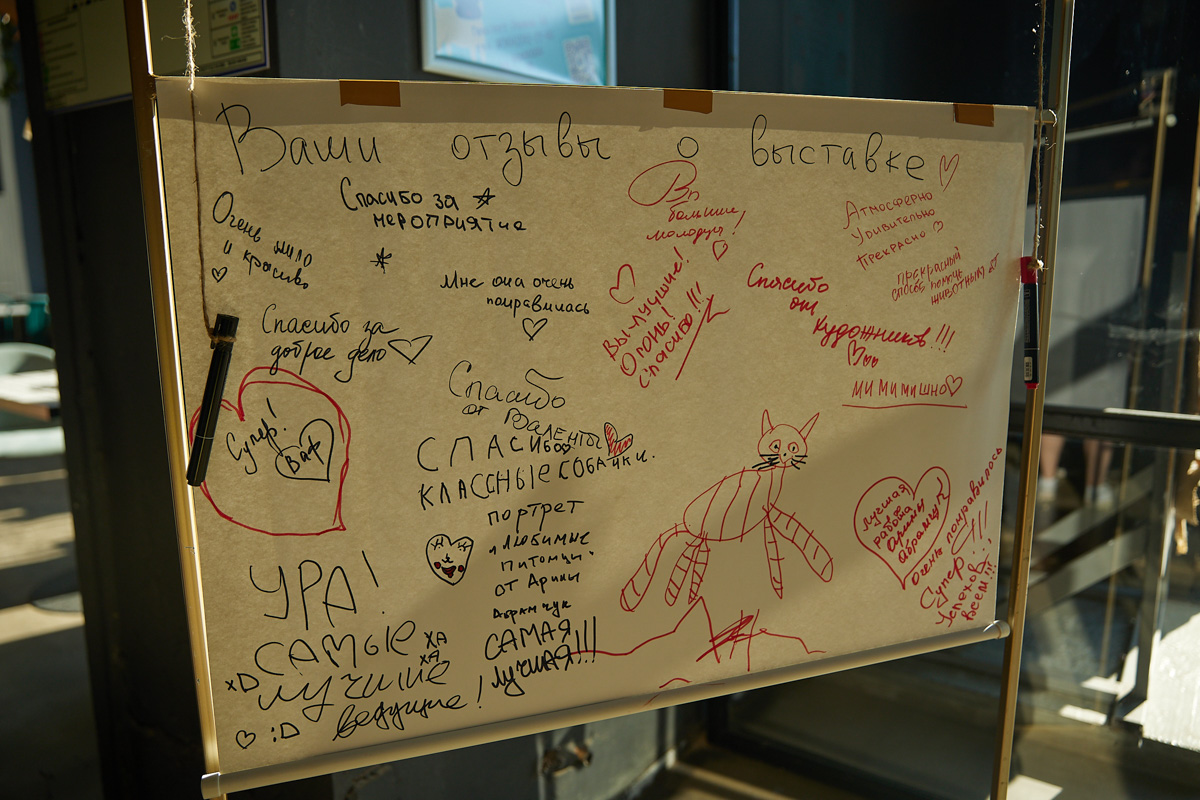 Ваши отзывы о выставке
Очень мило
и красиво
Спасибо за
мероприятие
Вы
большие
молодцы!
Атмосферно
Удивительно
Прекрасно
Прекрасный
способ помочь
животным
Мне она очень
понравилась
Вы-лучшие!
Огонь!
спасибо!!!
Спасибо
от
художников!!!
мимимишно
Спасибо за
доброе дело
Супер!
Ваф
Спасибо
от Валенты
СПАСИБО
КЛАССНЫЕ СОБАЧКИ.
портрет
"Любимые
питомцы"
от Арины
Абрамчук
САМАЯ
лучшая!!!
УРА!
САМЫЕ
лучшие
ведущие!
ха
ха
xD
:D
лучшая
работа
Арины
Абрамчук
очень понравилось
Супер!!!
Успехов
всем!!!